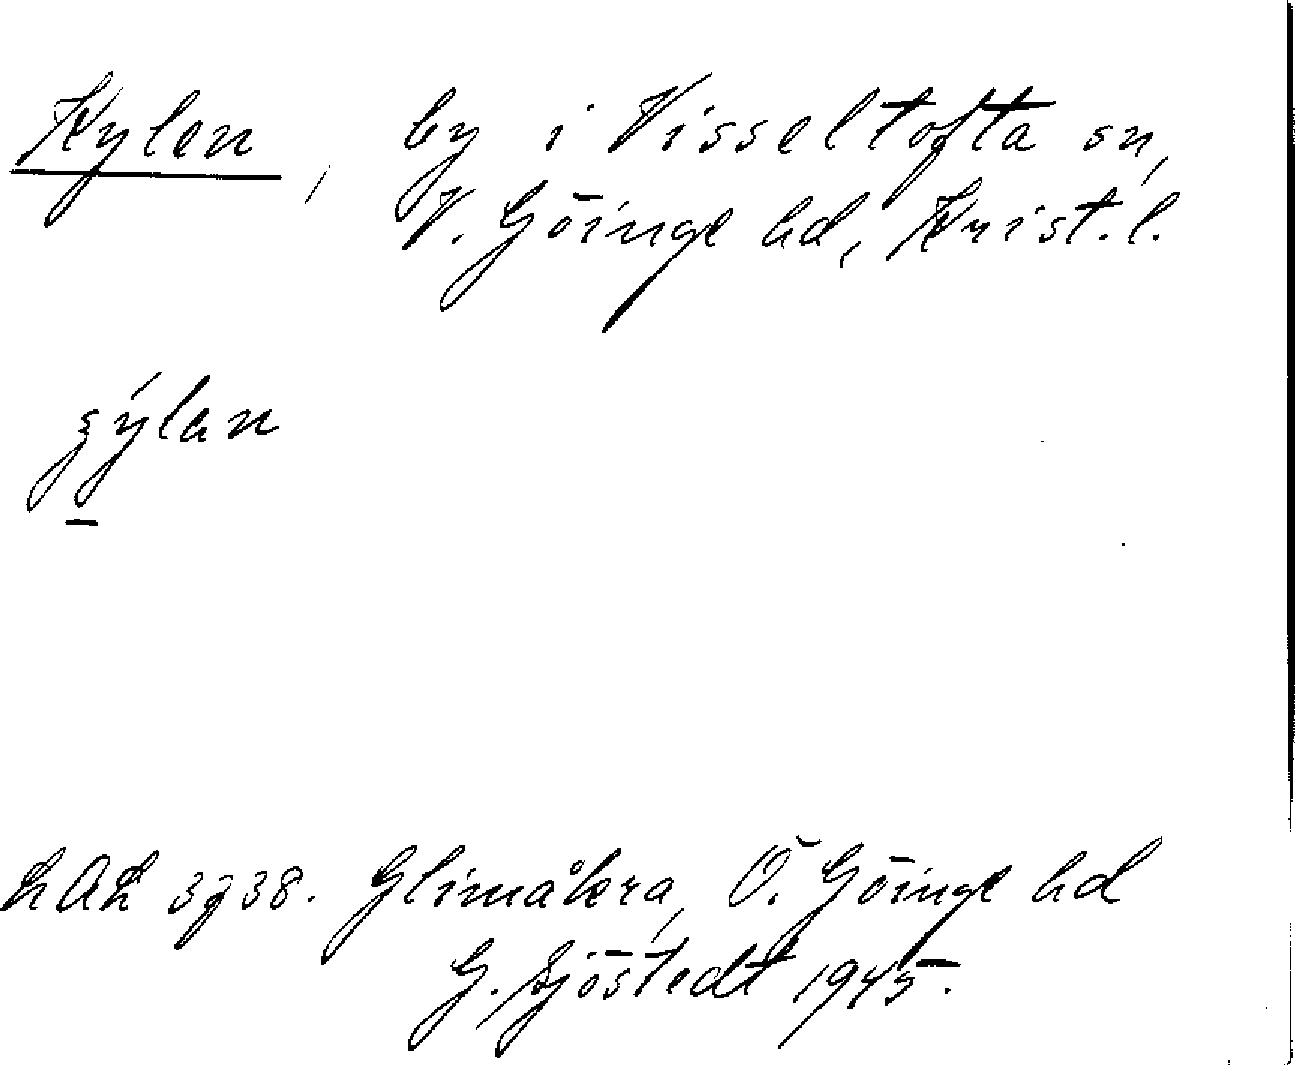 Kylen, by i Visseltofta sn,
V. Göinge hd, Krist.l.
LAL 3738. Glimåkra, Ö. Göinge hd
G. Sjöstedt 1945.